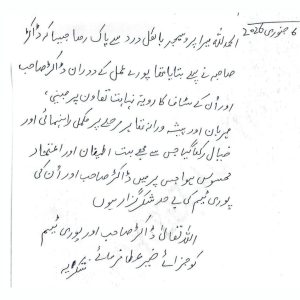 6 جنوری 2026
الحمدللہ میرا پروسیجر بالکل درد سے پاک رہا جیسا کہ ڈاکٹر
صاحبہ نے پہلے بتایا تھا پورے عمل کے دوران ڈاکٹر صاحب
اور اُن کے سٹاف کا رویہ نہایت تعاون پر مبنی،
مہربان اور پیشہ ورانہ تھا ہر مرحلے پر مکمل راہنمائی اور
خیال رکھا گیا جس سے مجھے بہت اطمینان اور اعتماد
محسوس ہوا جس پر میں ڈاکٹر صاحب اور اُن کی
پوری ٹیم کی بے حد شکر گزار ہوں
اللہ تعالیٰ ڈاکٹر صاحب اور پوری ٹیم
کو جزائے خیر عطا فرمائے شکریہ